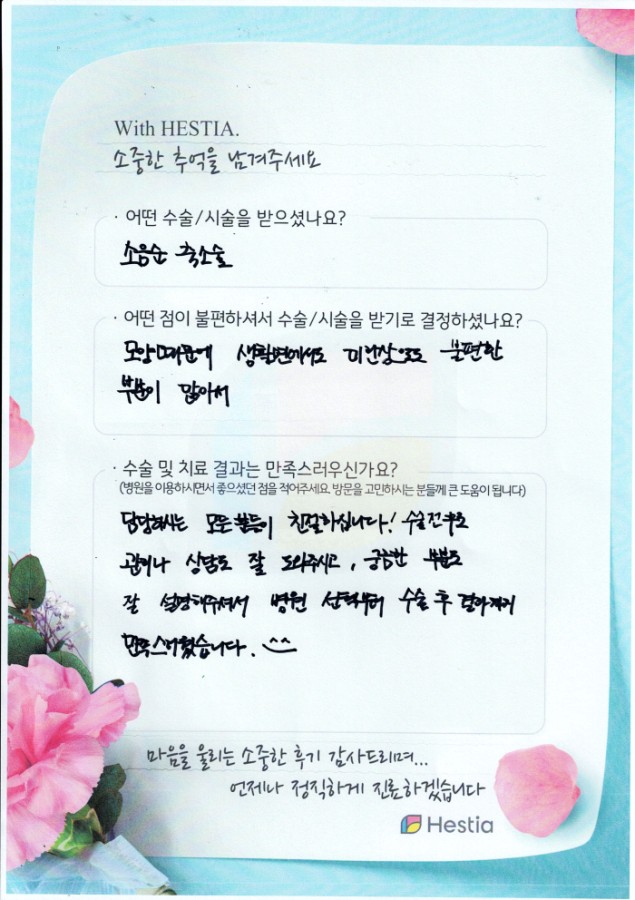 With HESTIA.
소중한 추억을 남겨주세요
· 어떤 수술/시술을 받으셨나요?
소음순 축소술
· 어떤 점이 불편하셔서 수술/시술을 받기로 결정하셨나요?
모양때문에 생활면에서도 미관상으로도 불편한
부분이 많아서
· 수술 및 치료 결과는 만족스러우신가요?
(병원을 이용하시면서 좋으셨던 점을 적어주세요. 방문을 고민하시는 분들께 큰 도움이 됩니다)
담당하시는 모든 분들이 친절하십니다! 수술전후로
관리나 상담도 잘 도와주시고, 궁금한 부분도
잘 설명해주셔서 병원 선택부터 수술 후 끝까지
만족스러웠습니다. ^^
마음을 울리는 소중한 후기 감사드리며...
언제나 정직하게 진료하겠습니다
Hestia